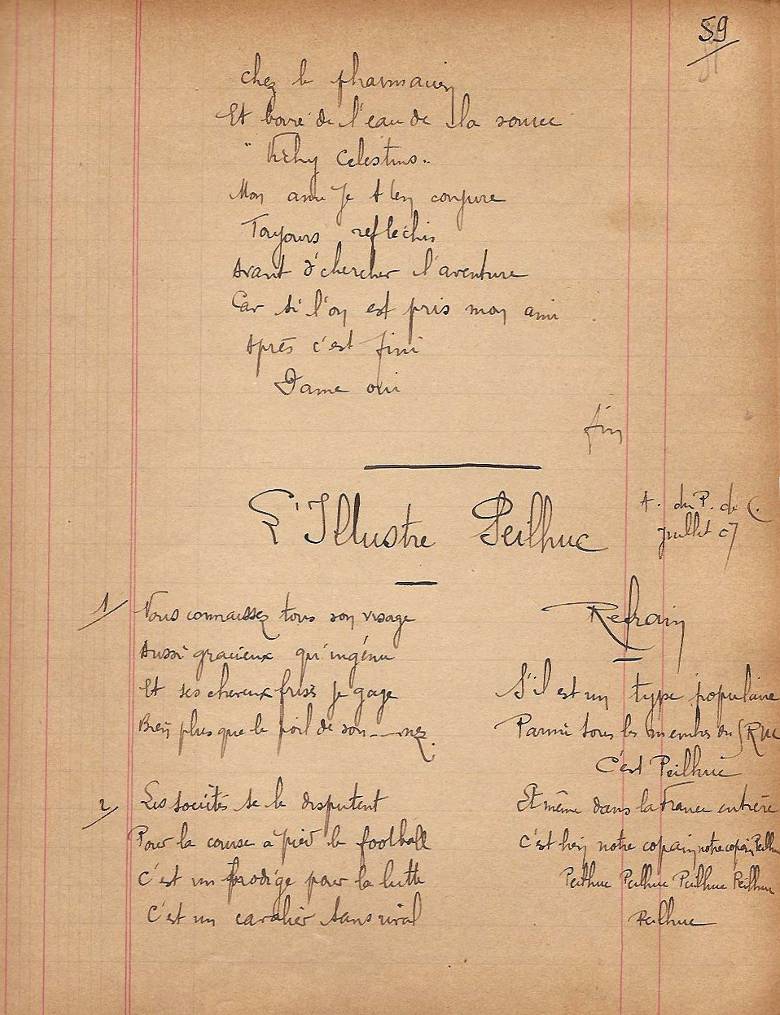 59
chez le pharmacien
Et boire de l'eau de la source
" Vichy Celestins "
Mon ami je t'en conjure
Toujours reflechis
Avant d'chercher l'aventure
Car si l'on est pris mon ami
Après c'est fini
Dame oui
fin
L'Illustre Peilhuc
A. du P. de C.
juillet 07
1/ Vous connaissez tous son visage
Aussi gracieux qu'ingénu
Et ses cheveux frisés je gage
Bien plus que le poil de son ... nez.
2/ Les sociétés se le disputent
Pour la course à pied le football
C'est un prodige pour la lutte
C'est un cavalier sans rival
Refrain
S'il est un type populaire
Parmi tous les membres du
C'est Peilhuc
Et même dans la France entière
C'est bien notre copain notre copain Peilhuc
Peilhuc Peilhuc Peilhuc Peilhuc
Peilhuc